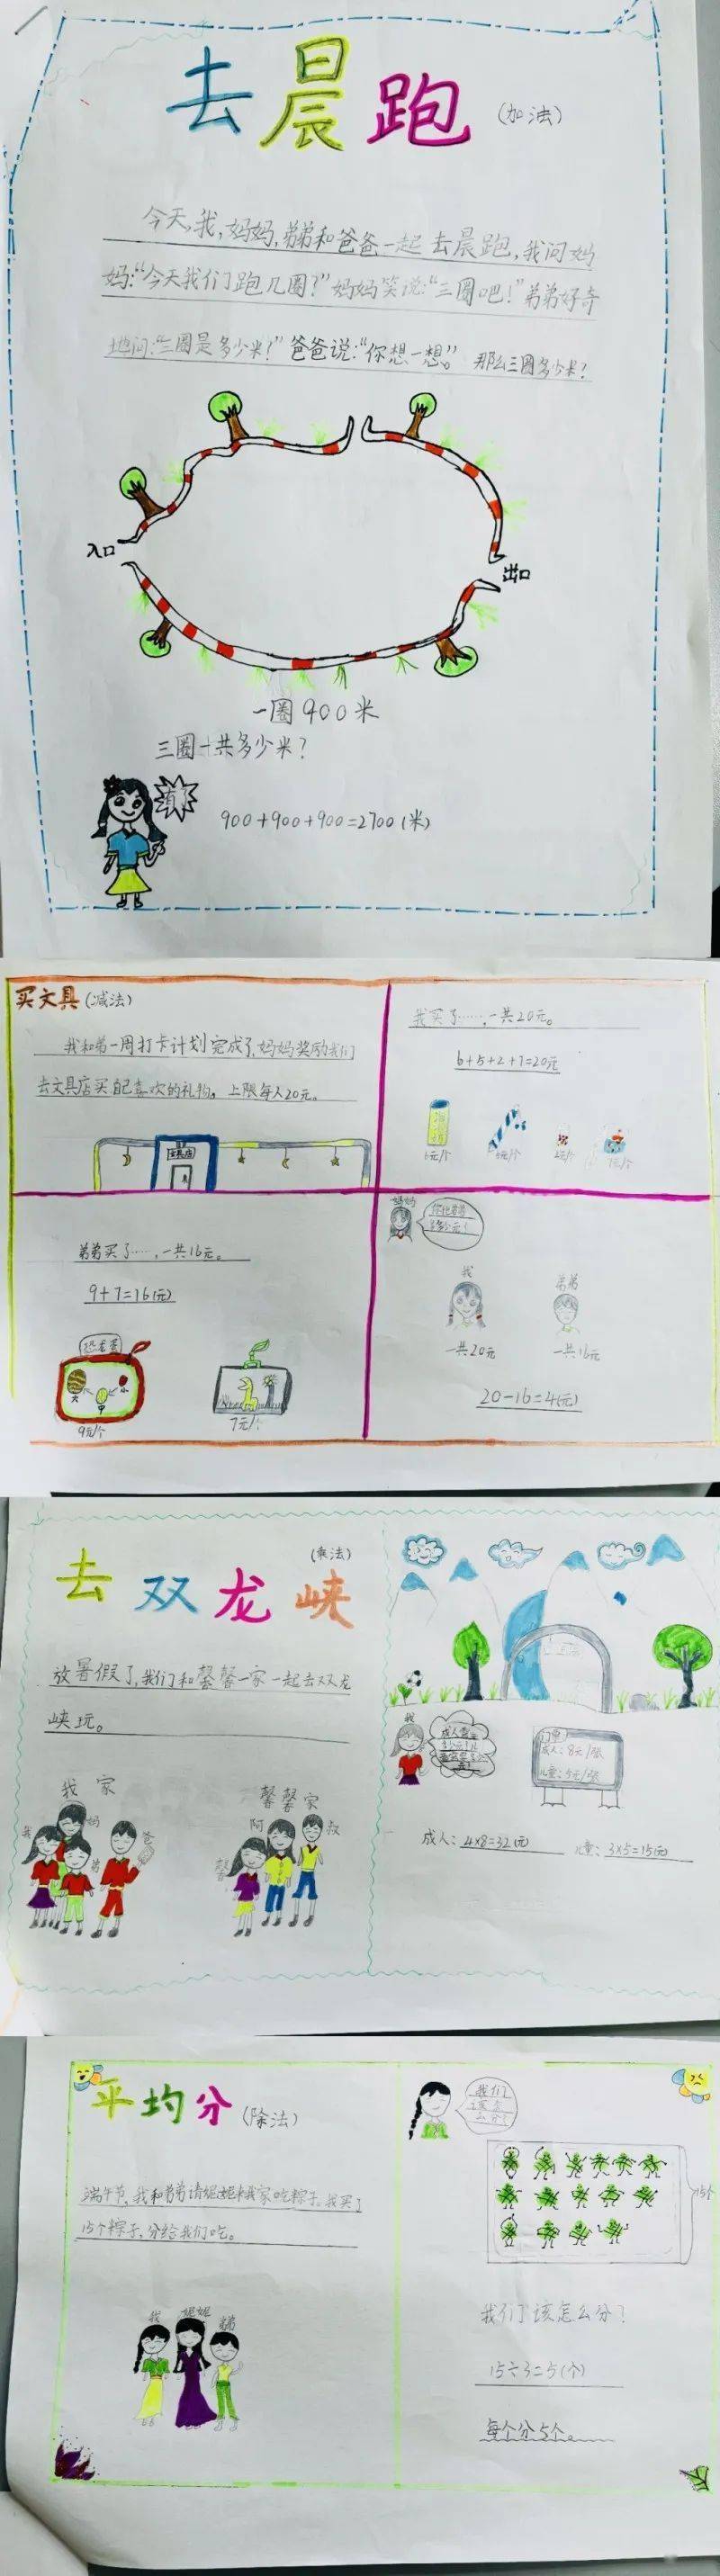 去晨跑(加法)
今天,我,妈妈,弟弟和爸爸一起去晨跑,我问妈
妈:“今天我们跑几圈?”妈妈笑说:“三圈吧!”弟弟好奇
地问:“三圈是多少米?”爸爸说:“你想一想。”那么三圈多少米?
入口
出口
一圈900米
三圈一共多少米?
900+900+900=2700(米)
买文具(减法)
我和弟一周打卡计划完成了,妈妈奖励我们
去文具店买自己喜欢的礼物。上限每人20元。
文具店
我买了……,一共20元。
6+5+2+7=20元
6元/个
5元/个
2元/个
7元/个
弟弟买了……,一共16元。
9+7=16(元)
恐龙蛋
大
中
小
9元/个
7元/个
妈妈
我
弟弟
一共20元
一共16元
20-16=4(元)
去双龙峡
(乘法)
放暑假了,我们和馨馨一家一起去双龙
峡玩。
我家
我
妈
弟
爸
馨馨家
馨
阿
叔
我
门票
成人:8元/张
儿童:5元/张
成人:4×8=32(元)
儿童:3×5=15(元)
平均分(除法)
端午节,我和弟弟请妮妮来我家吃粽子,我买了
15个粽子,分给我们吃。
我
妮妮
弟弟
我们
该怎
么分?
15个
我们该怎么分?
15÷3=5(个)
每个分5个。